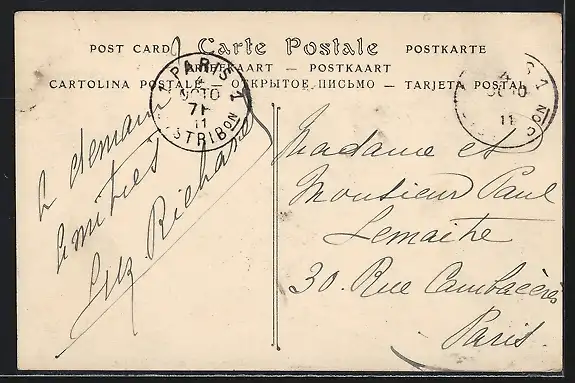 POST CARD Carte Postale POSTKARTE
BRIEFKAART — POSTKAART
CARTOLINA POSTALE — ОТКРЫТОЕ ПИСЬМО — TARJETA POSTAL
PARIS 1
4
10
7
11
DISTRIBON
4
10
11
à demain
amitiés
Richard
Madame et
Monsieur Paul
Lemaitre
30. Rue Cambacérès
Paris.